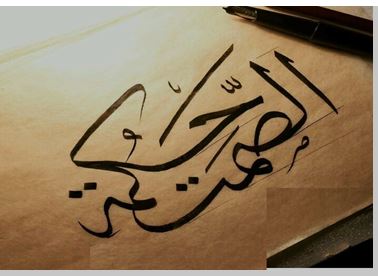 الصمت حكمة